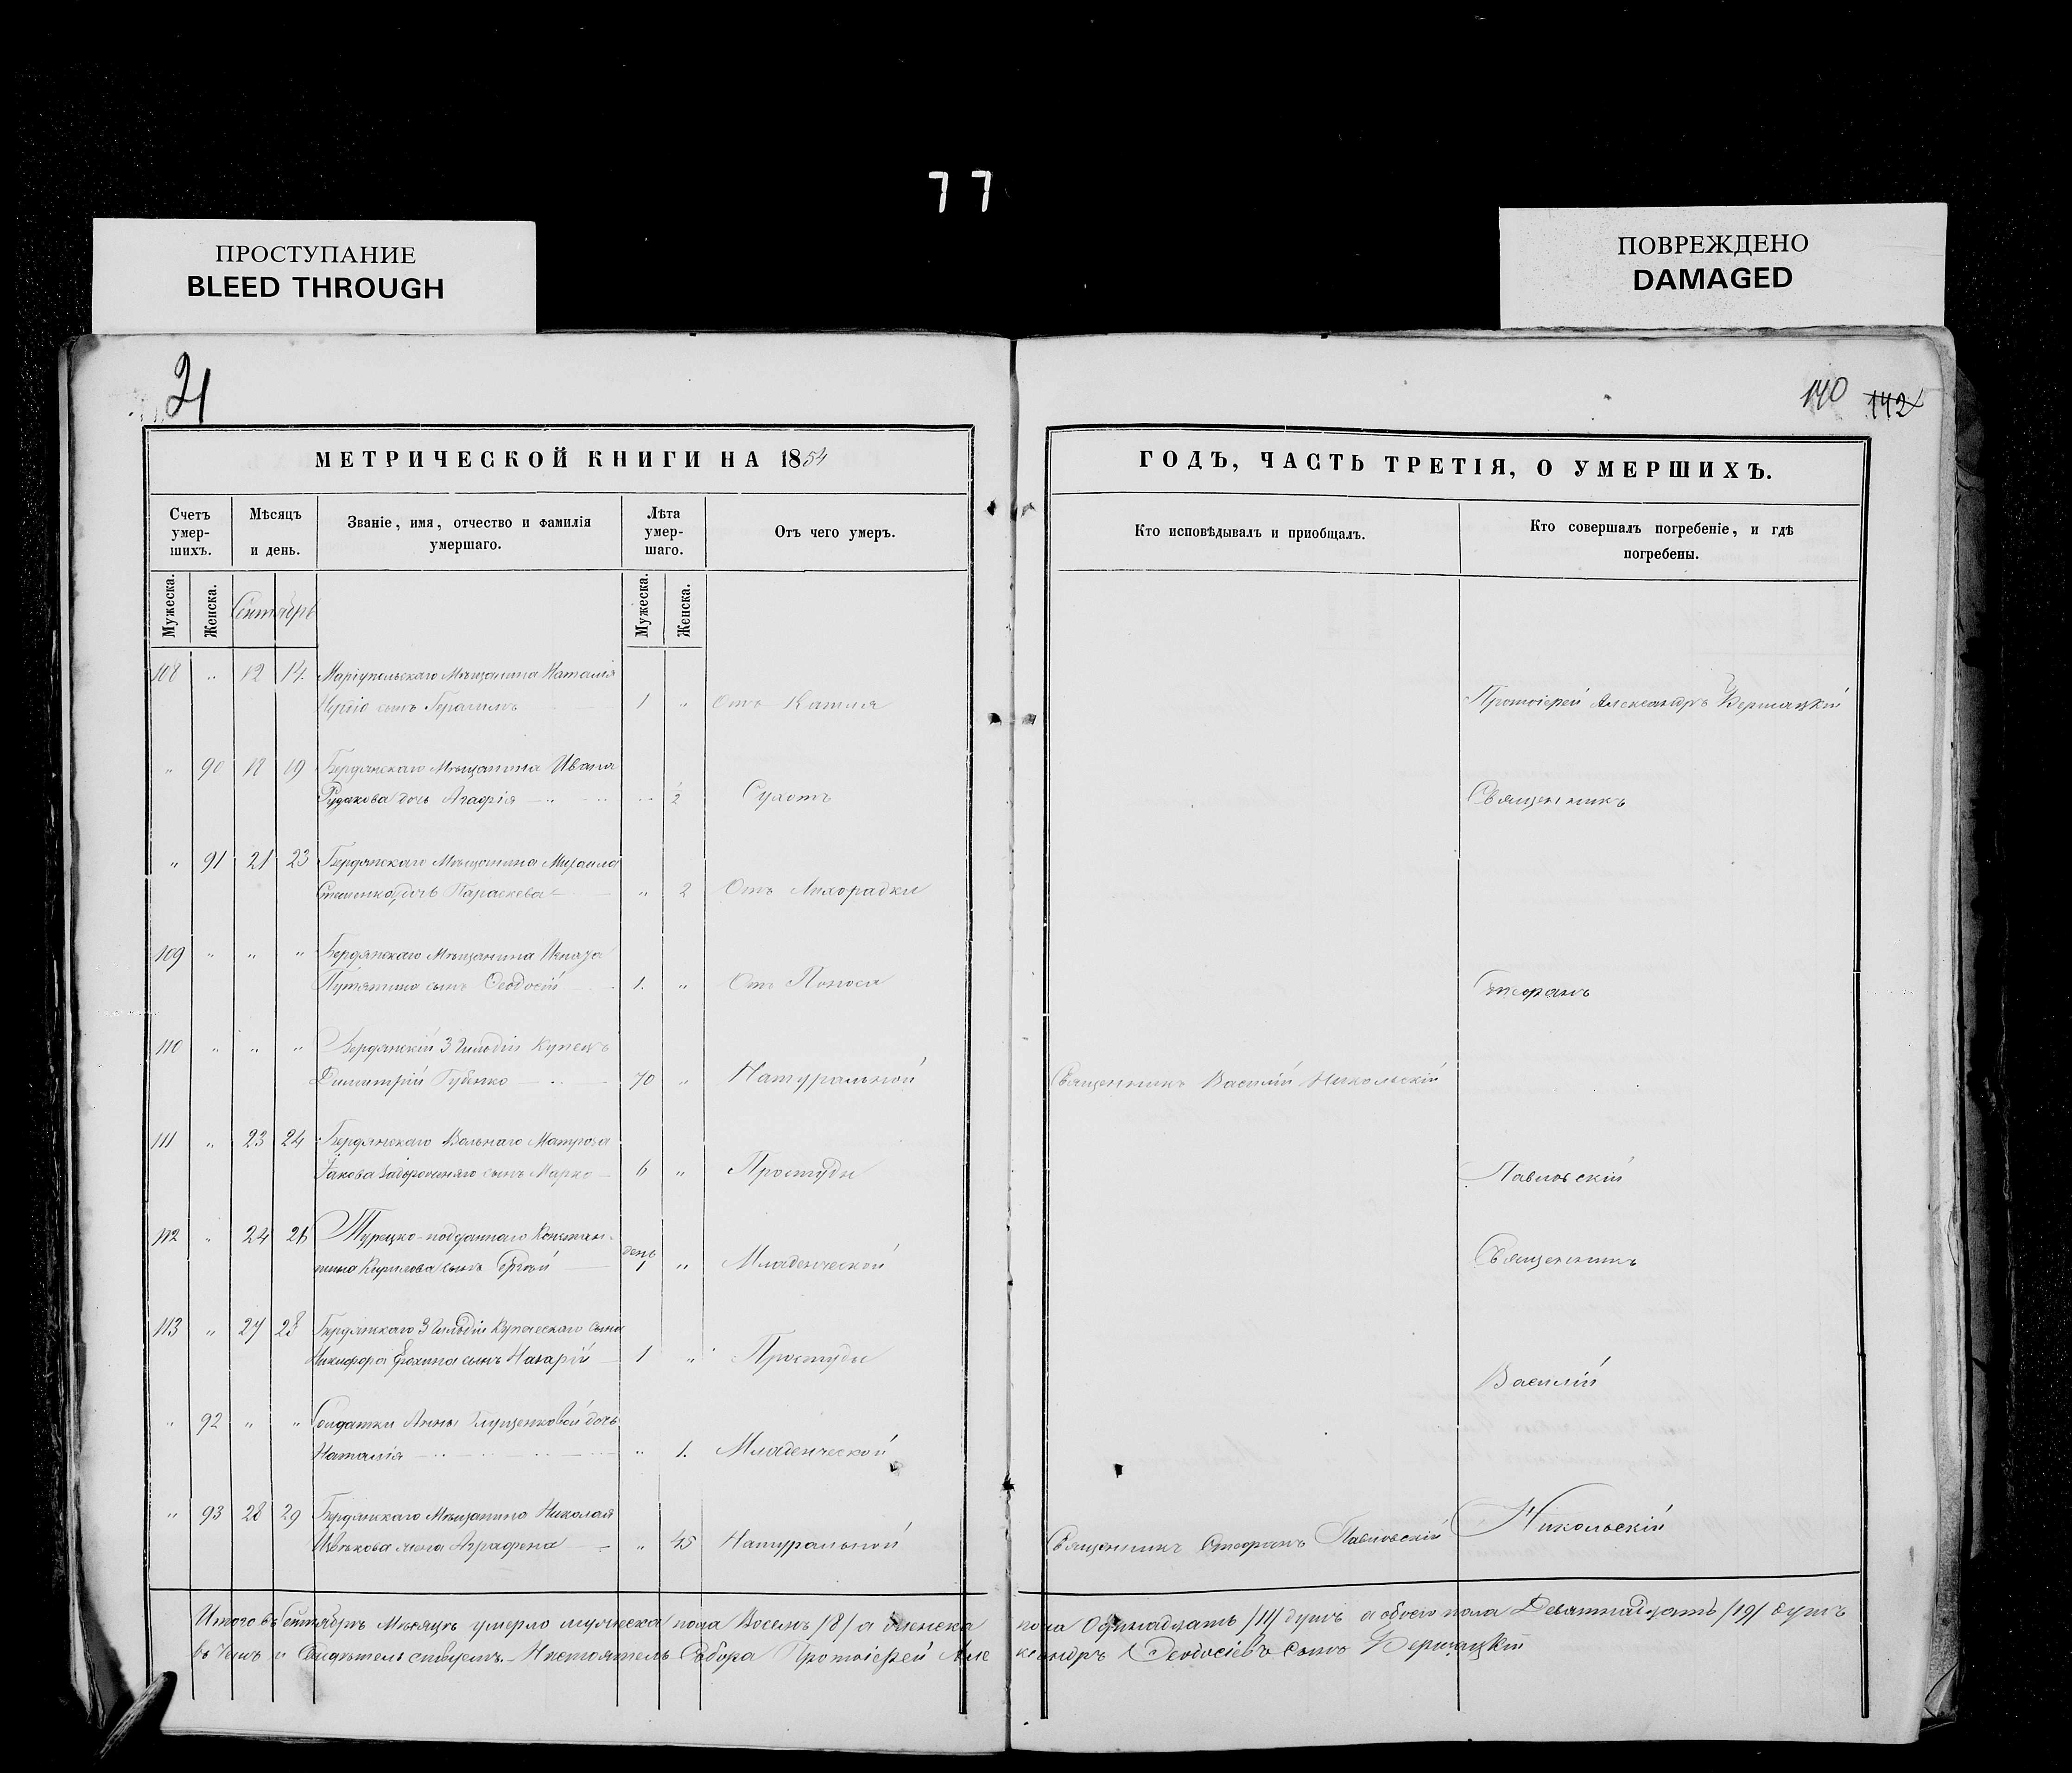 77
ПРОСТУПАНИЕ
BLEED THROUGH
ПОВРЕЖДЕНО
DAMAGED
21
140 142
МЕТРИЧЕСКОЙ КНИГИ НА 1854
ГОДЪ, ЧАСТЬ ТРЕТІЯ, О УМЕРШИХЪ.
Счетъ умер-шихъ.
Мѣсяцъ и день.
Званіе, имя, отчество и фамилія умершаго.
Лѣта умер-шаго.
Отъ чего умеръ.
Кто исповѣдывалъ и приобщалъ.
Кто совершалъ погребеніе, и гдѣ погребены.
Мужеска. Женска. Сентябрь Мужеска. Женска.
108 " 12 14 Маріупольскаго Мѣщанина
сынъ Герасимъ 1 " Отъ Кашля Протоіерей Александръ Вершацкій
" 90 18 19 Бердянскаго Мѣщанина Ивана
Рудакова дочь Агафія 2 Сухотъ Священникъ
" 91 21 23 Бердянскаго Мѣщанина Михаила
дочь Параскева " 2 Отъ Лихорадки
109 " " " Бердянскаго Мѣщанина
Путятина сынъ Феодосій 1. " Отъ Поноса Стефанъ
110 " " " Бердянскій 3 Гильдіи Купецъ
Димитрій Губенко 70 " Натуральной Священникъ Василій Никольскій
111 " 23 24 Бердянскаго Вольнаго Матроса
Іакова сынъ Марко 6 " Простуды Павловскій
112 " 24 26 Турецко-подданнаго Констан-
тина Кирилова сынъ день 1 " Младенческой Священникъ
113 " 27 28 Бердянскаго 3 Гильдіи Купеческаго сына
Никифора сынъ Назарій 1 " Простуды
Василій
" 92 " " Солдатки Анны Глущенковой дочь
Наталія " 1. Младенческой
" 93 28 29 Бердянскаго Мѣщанина Николая
жена Аграфена " 45 Натуральной Священникъ Стефанъ Павловскій Никольскій
Итого въ Сентябрѣ Мѣсяцѣ умерло мужеска пола Восемь /8/ а женска пола Одинадцать /11/ душъ а обоего пола Девятнадцать /19/ душъ
въ чемъ и Свидѣтельствуемъ. Настоятель Собора Протоіерей Александръ Феодосіевъ сынъ Вершацкій